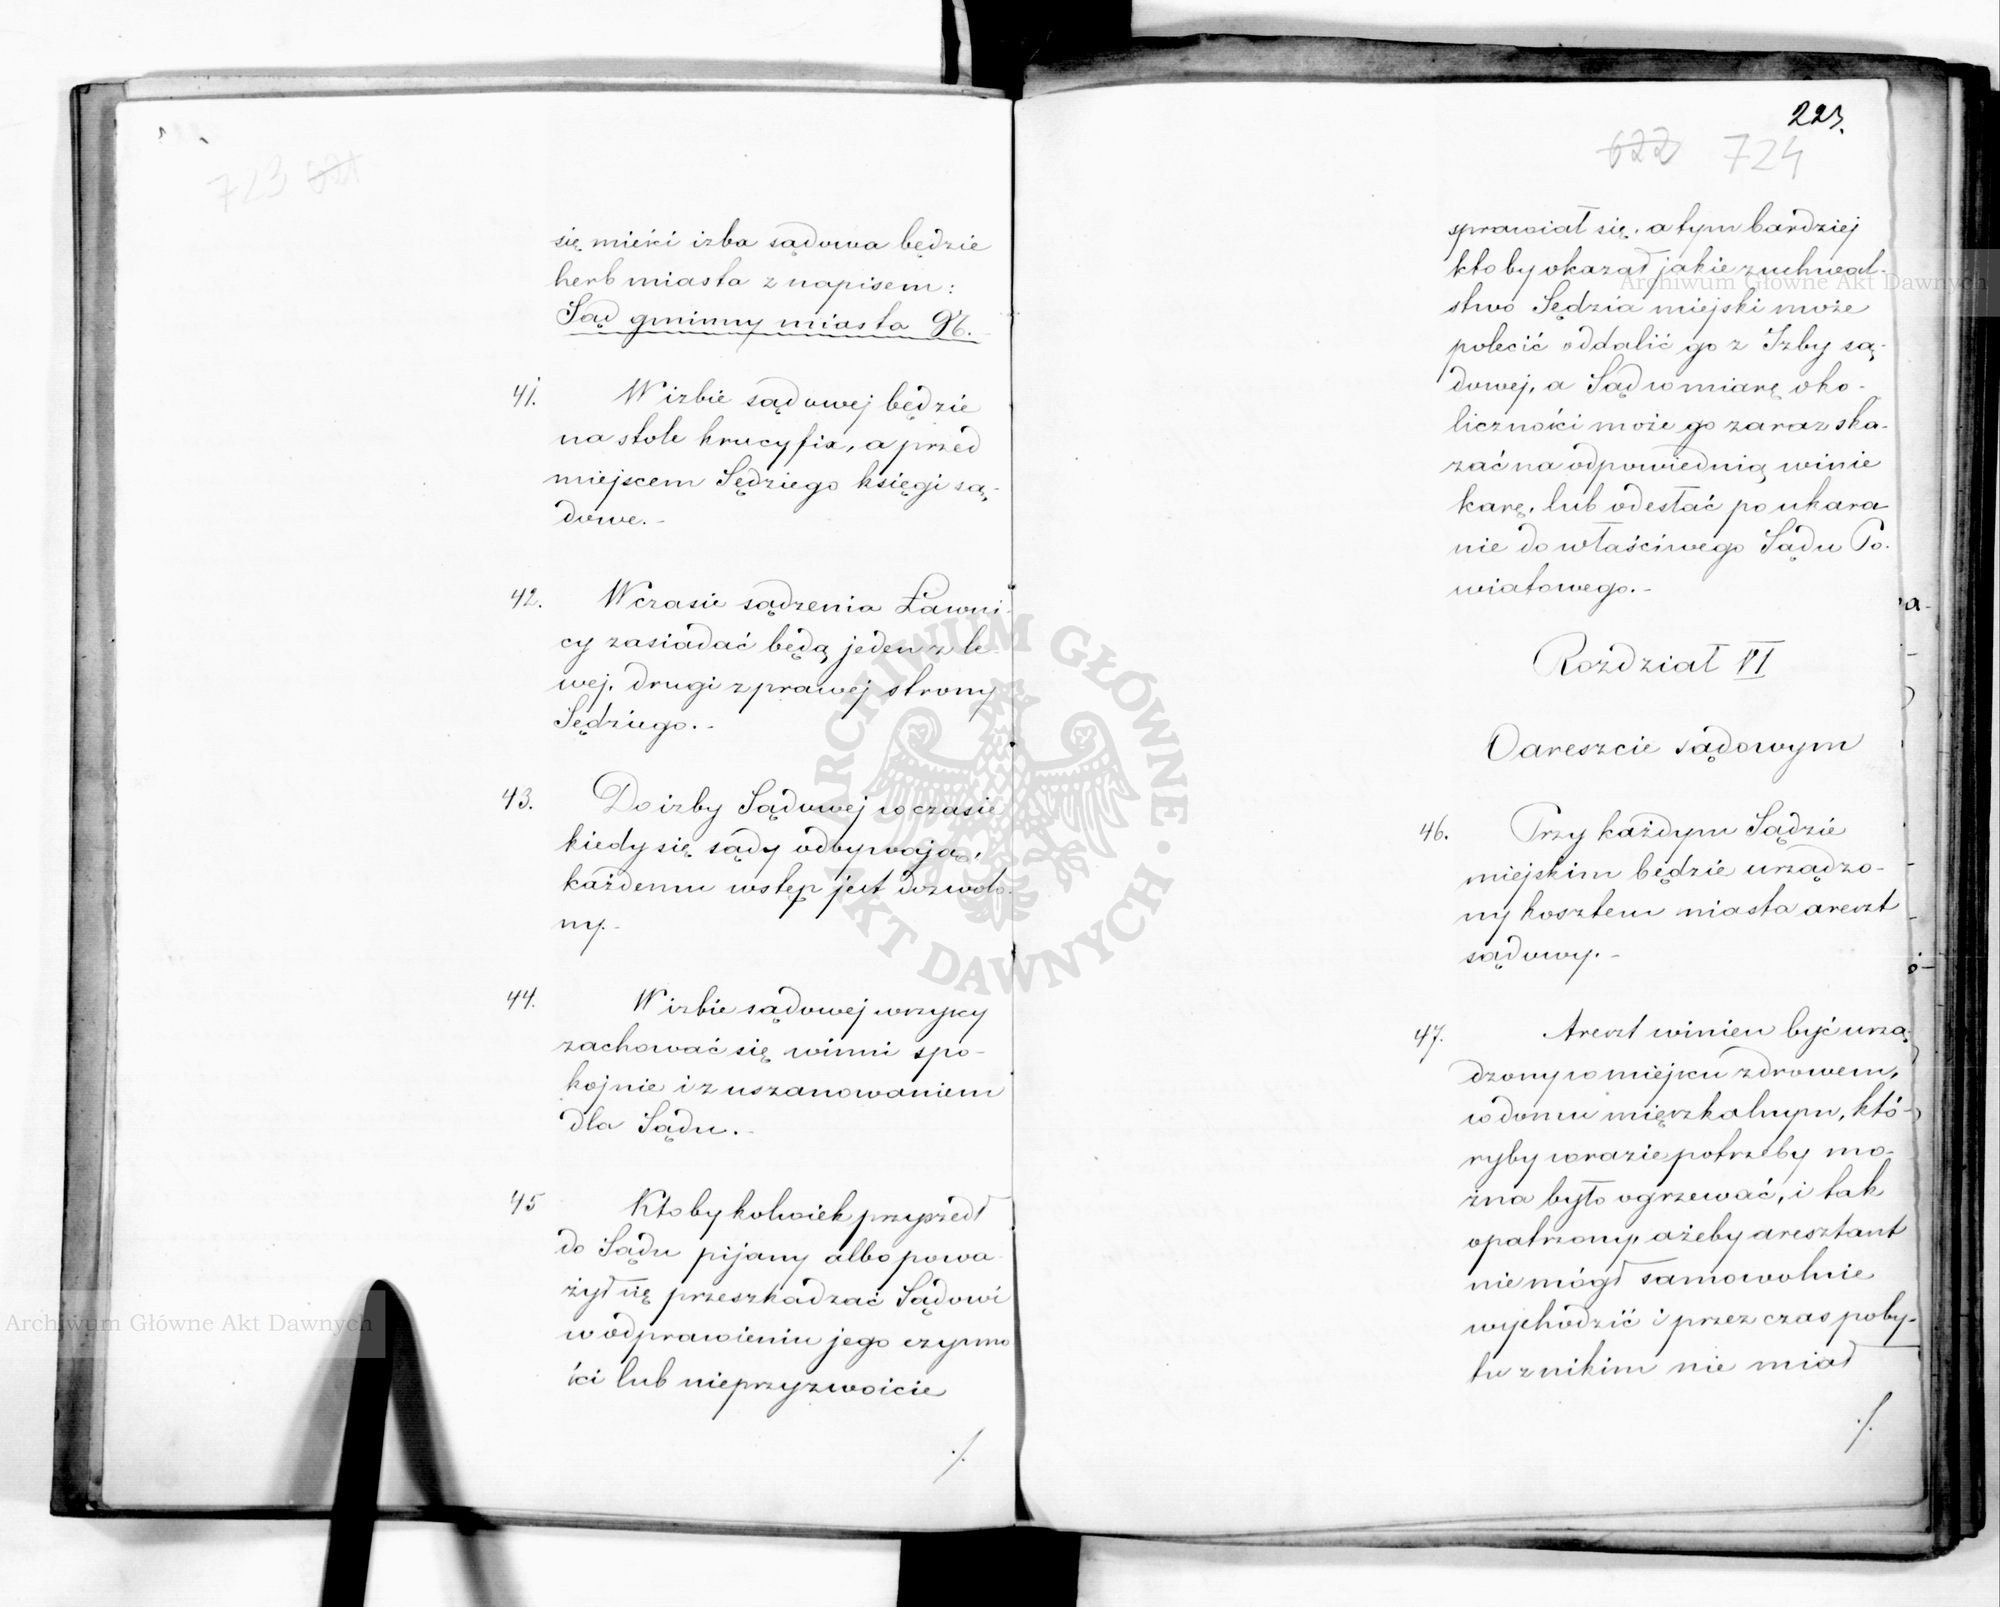 723 621
się mieści izba sądowa będzie
herb miasta z napisem:
Sąd gminny miasta N.
41. W izbie sądowej będzie
na stole krucyfix, a przed
miejscem Sędziego księgi są-
dowe.-
42. W czasie sądzenia Ławni-
cy zasiadać będą jeden z le-
wej, drugi z prawej strony
Sędziego.-
43. Do izby Sądowej w czasie
kiedy się sądy odbywają,
każdemu wstęp jest dozwolo-
ny.-
44. W izbie sądowej wszyscy
zachować się winni spo-
kojnie i z uszanowaniem
dla Sądu.-
45 Ktoby kolwiek przyszedł
do Sądu pijany albo powa-
żył się przeszkadzać Sądowi
w odprawieniu jego czynno
ści lub nieprzyzwoicie
./.
223.
622 724
sprawiał się, a tym bardziej
kto by okazał jakie zuchwal-
stwo Sędzia miejski może
polecić oddalić go z Izby są-
dowej, a Sąd w miarę oko-
liczności może go zaraz ska-
zać na odpowiednią winie
karę, lub odesłać po ukara
nie do właściwego Sądu Po-
wiatowego.-
Rozdział VI
O areszcie sądowym
46. Przy każdym Sądzie
miejskim będzie urządzo-
ny kosztem miasta areszt
sądowy.-
47. Areszt winien być urzą-
dzony w miejscu zdrowem,
w domu mięszkalnym, któ-
ryby w razie potrzeby mo-
żna było ogrzewać, i tak
opatrzony, ażeby aresztant
nie mógł samowolnie
wychodzić i przez czas poby-
tu z nikim nie miał
./.
Archiwum Główne Akt Dawnych
ARCHIWUM GŁÓWNE AKT DAWNYCH
Archiwum Główne Akt Dawnych